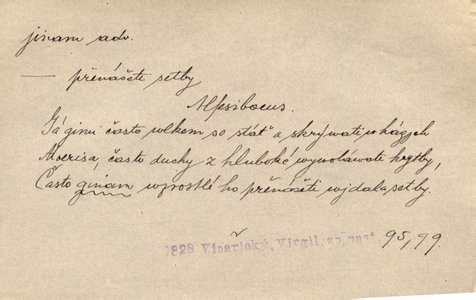 jinam adv.
— přenášeti setby
Alfesiboeus.
Já ginú často wlkem se stát' a skrýwati w hágjch
Moerisa, často duchy z hluboké wywoláwati krytby,
Často ginam wzrostlé ho přenášeti wjdala setby.
1828 Vinařický, Virgil, zp. past. 95, 99.